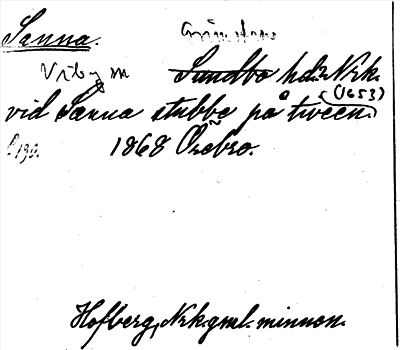 Sanna. Grimstens
Viby sn Sundbo hd: Nrk.
(1653)
vid Sanna stubbe på tween.
s. 130. 1868 Örebro.
Hofberg, Nrk. gml. minnen.